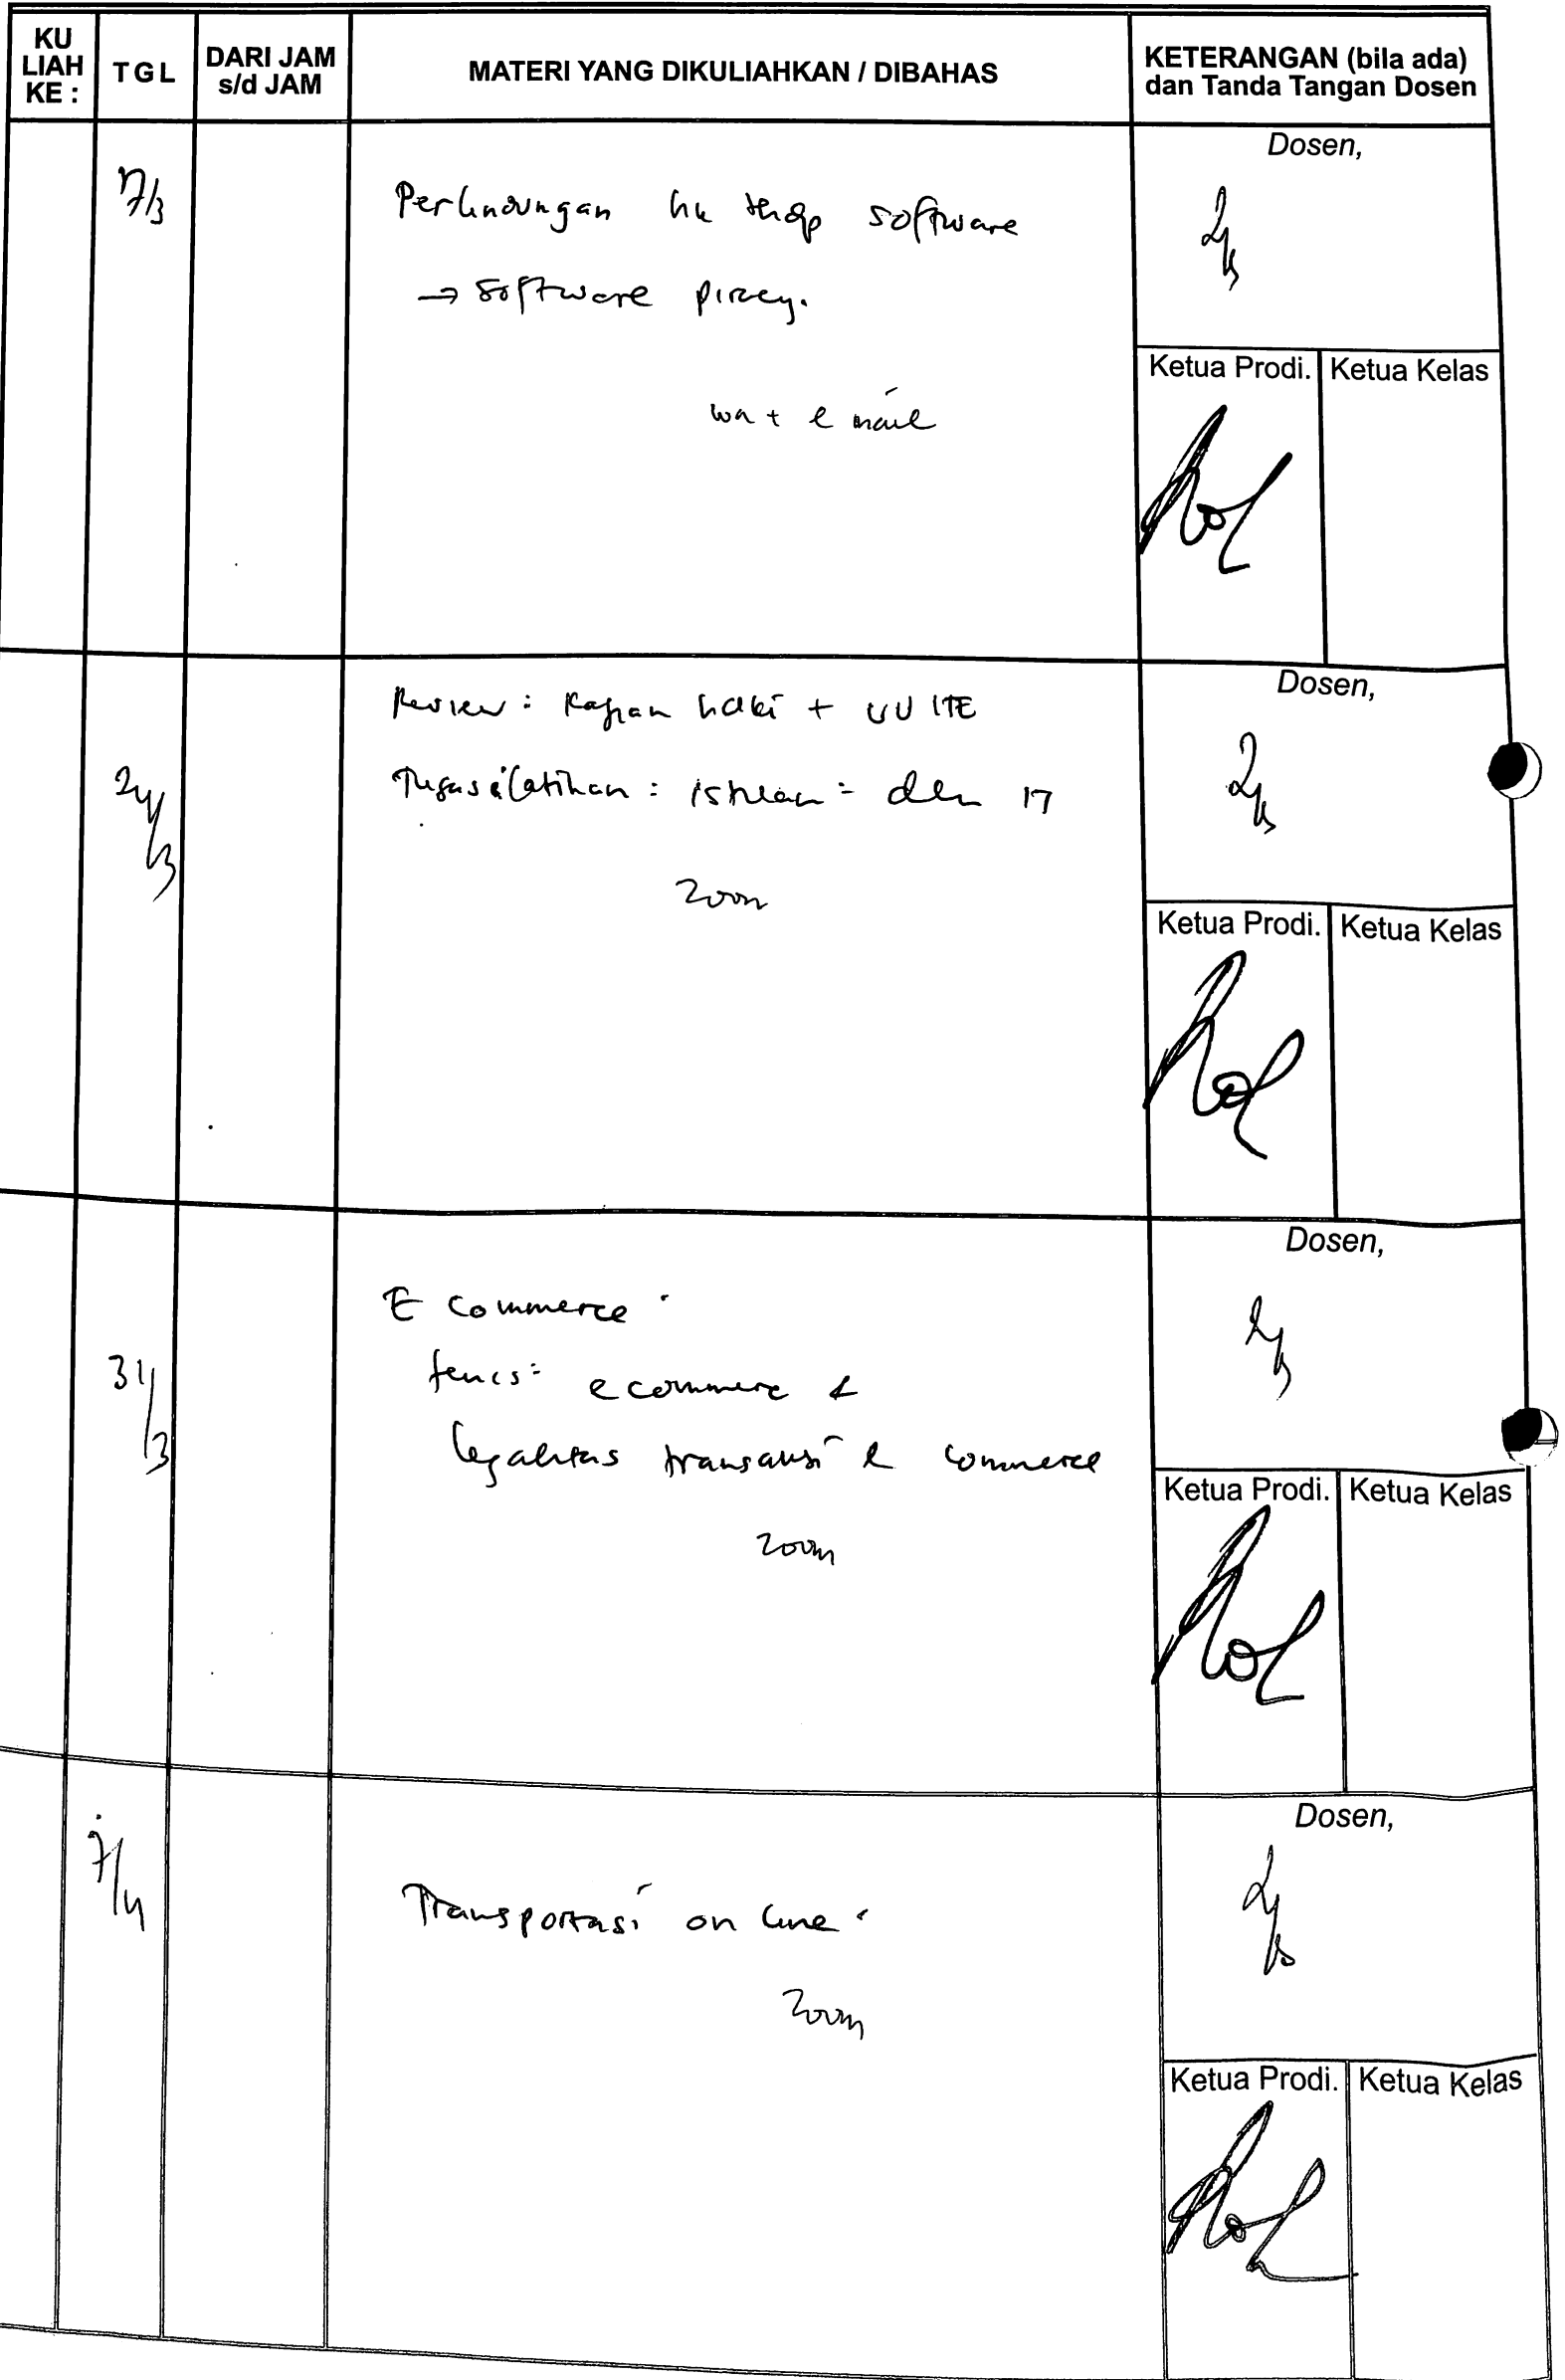 KU LIAH KE :
TGL
DARI JAM s/d JAM
MATERI YANG DIKULIAHKAN / DIBAHAS
KETERANGAN (bila ada) dan Tanda Tangan Dosen
Dosen,
17/3
Perlindungan hk thdp software
→ software piracy.
wa + e mail
Ketua Prodi. Ketua Kelas
Dosen,
24/3
Review : Kajian haki + UU ITE
Tugas latihan : istilah = dlm IT
zoom
Ketua Prodi. Ketua Kelas
Dosen,
31/3
E commerce
jenis = e commerc &
legalitas transaksi e commerce
zoom
Ketua Prodi. Ketua Kelas
Dosen,
7/4
Transportasi on line
zoom
Ketua Prodi. Ketua Kelas